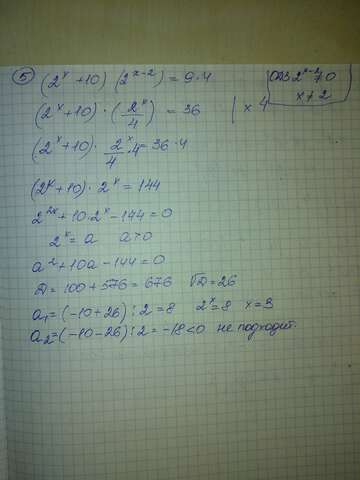 5 (2ˣ+10) (2ˣ⁻²) = 9·4
ОДЗ 2ˣ⁻²≠0
x≠2
(2ˣ+10)·(2ˣ/4) = 36 | x 4
(2ˣ+10)·2ˣ/4·4=36·4
(2ˣ+10)·2ˣ=144
2²ˣ+10·2ˣ-144=0
2ˣ=a a>0
a²+10a-144=0
D=100+576=676 √D=26
a₁=(-10+26):2=8 2ˣ=8 x=3
a₂=(-10-26):2=-18<0 не подходит.